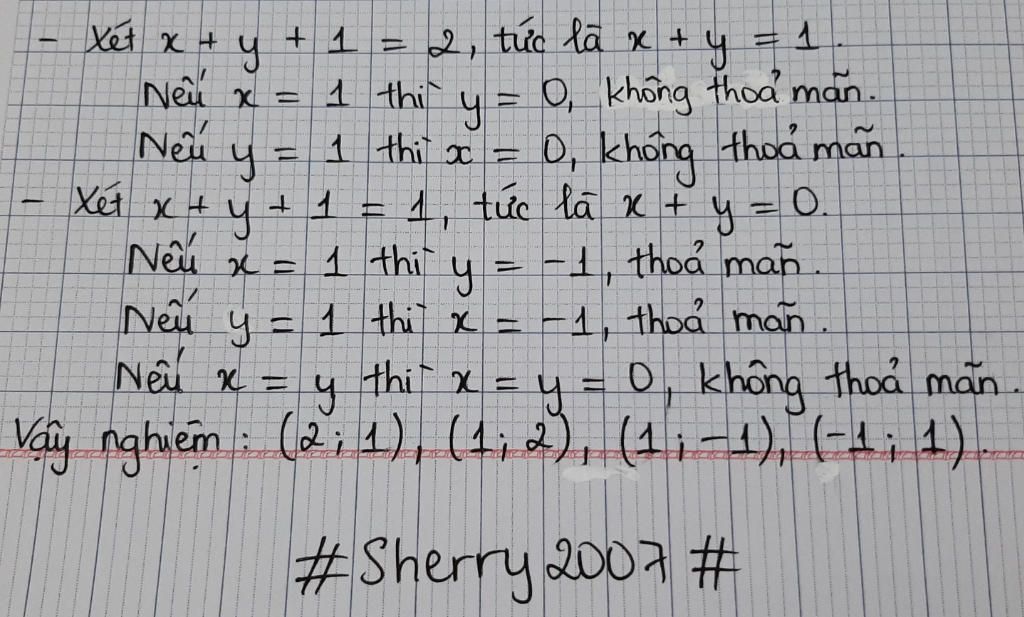 - Xét x + y + 1 = 2, tức là x + y = 1.
Nếu x = 1 thì y = 0, không thoả mãn.
Nếu y = 1 thì x = 0, không thoả mãn.
- Xét x + y + 1 = 1, tức là x + y = 0.
Nếu x = 1 thì y = -1, thoả mãn.
Nếu y = 1 thì x = -1, thoả mãn.
Nếu x = y thì x = y = 0, không thoả mãn.
Vậy nghiệm : (2; 1), (1; 2), (1; -1), (-1; 1).
# Sherry 2007 #